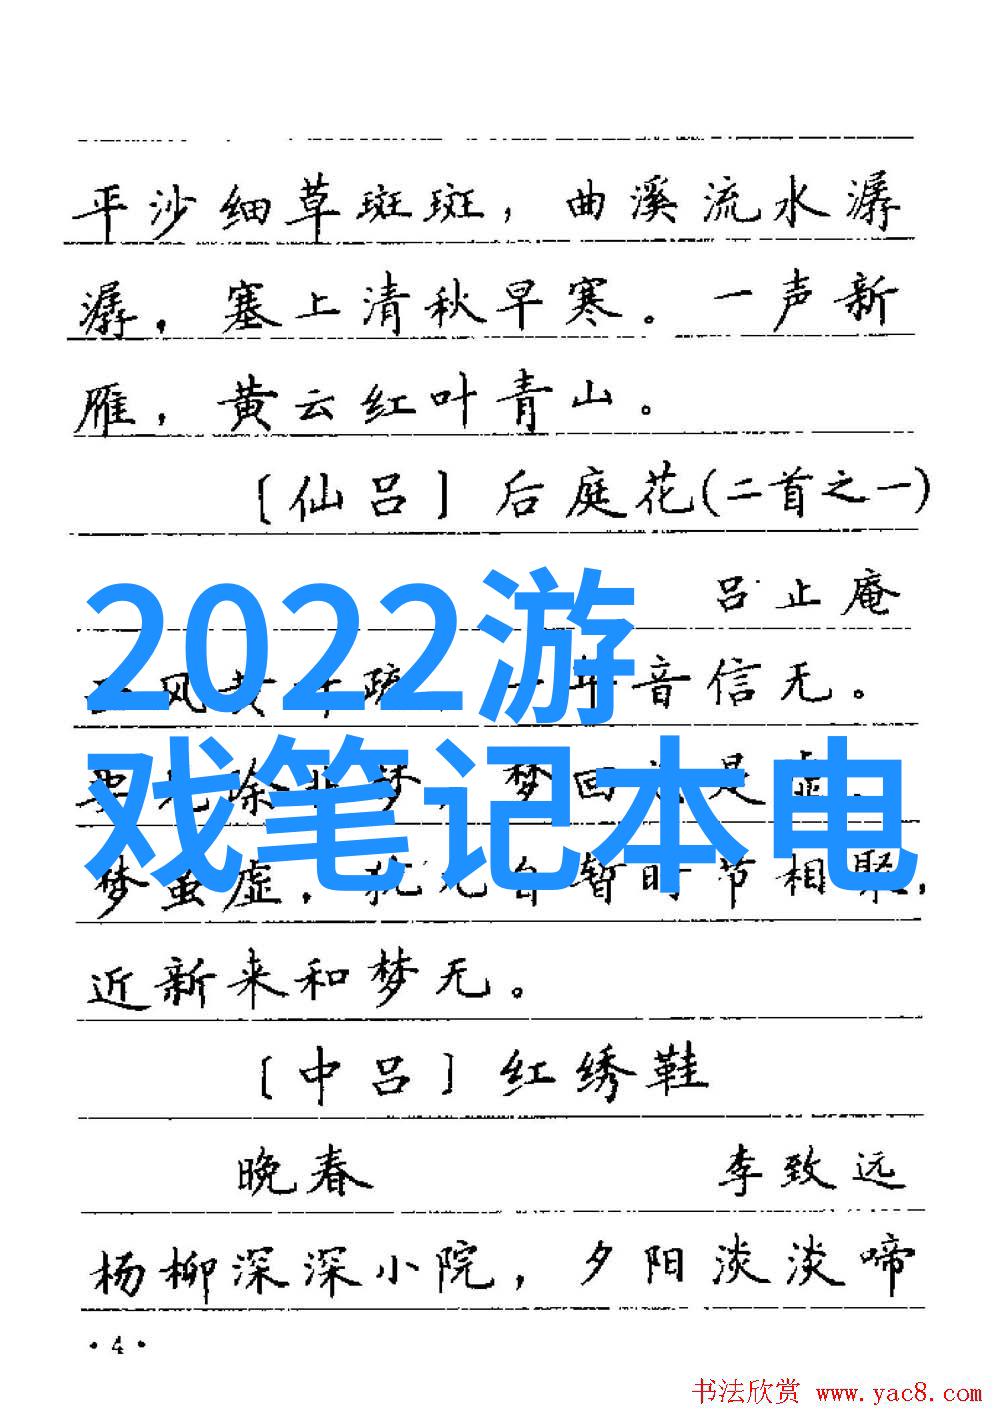 平沙细草斑斑，曲溪流水潺
潺，塞上清秋早寒。一声新
雁，黄云红叶青山。
〔仙吕〕后庭花(二首之一)
吕止庵
2022游
风黄 疏 音信无。
戏笔记本电
除非梦，梦回 是虚。
梦虽虚，犹 自暂时节相聚，
近新来和梦无。
〔中吕〕红绣鞋
晚春 李致远
杨柳深深小院，夕阳淡淡啼
·4·
书法欣赏 www.yac8.com